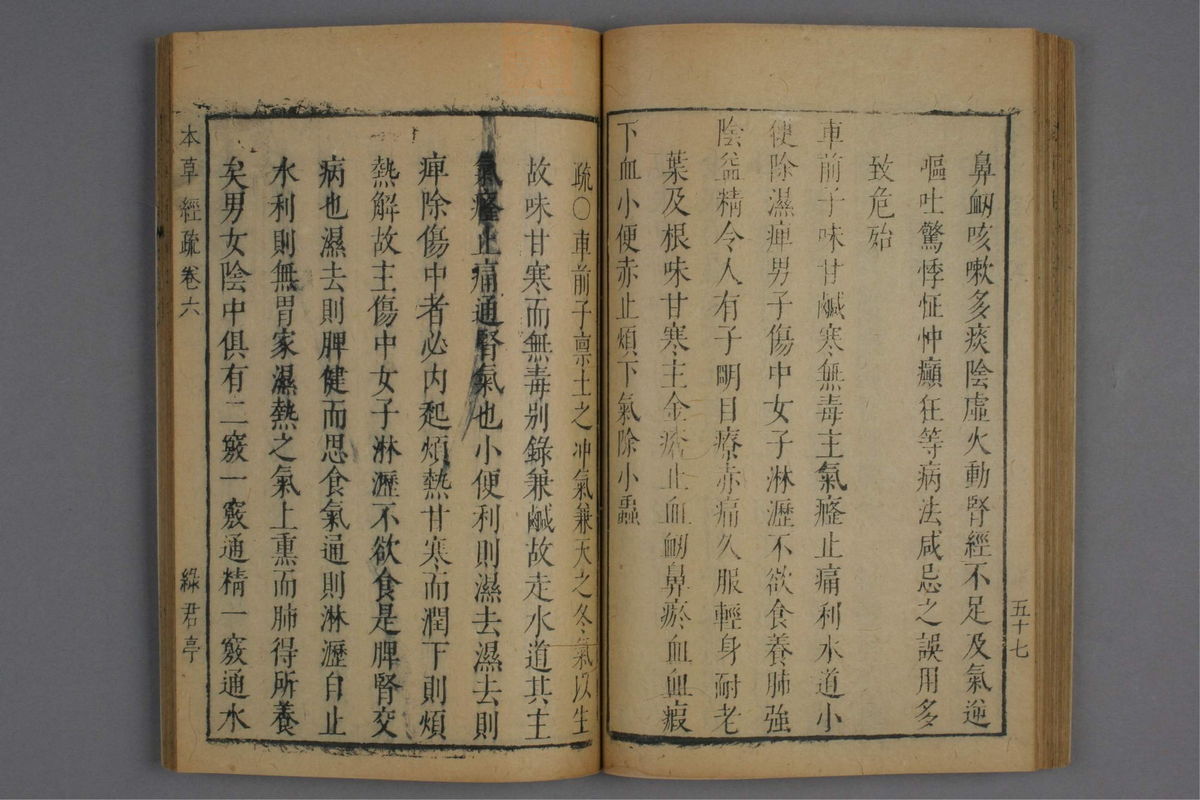 五十七
鼻衂咳嗽多痰陰虛火動腎經不足及氣逆
嘔吐驚悸怔忡癲狂等病法咸忌之誤用多
致危殆
車前子味甘鹹寒無毒主氣癃止痛利水道小
便除濕痺男子傷中女子淋瀝不欲食養肺強
陰益精令人有子明目療赤痛久服輕身耐老
葉及根味甘寒主金瘡止血衂鼻瘀血血瘕
下血小便赤止煩下氣除小蟲
疏○車前子禀土之冲氣兼天之冬氣以生
故味甘寒而無毒别錄兼鹹故走水道其主
氣癃止痛通腎氣也小便利則濕去濕去則
痺除傷中者必内起煩熱甘寒而潤下則煩
熱解故主傷中女子淋瀝不欲食是脾腎交
病也濕去則脾健而思食氣通則淋瀝自止
水利則無胃家濕熱之氣上熏而肺得所養
矣男女陰中俱有二竅一竅通精一竅通水
本草經疏卷六
綠君亭